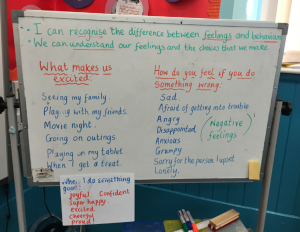 I can recognise the difference between feelings and behaviour
We can understand our feelings and the choices that we make.
What makes us excited:
Seeing my family
Playing with my friends
Movie night
Going on outings
Playing on my tablet
When I get a treat.
How do you feel if you do something wrong:
Sad
Afraid of getting into trouble
Angry
Disappointed
Anxious
Grumpy
Sorry for the person I upset
Lonely.
(Negative feelings)
When I do something good:
Joyful Confident
Super happy
excited
Cheerful
proud!